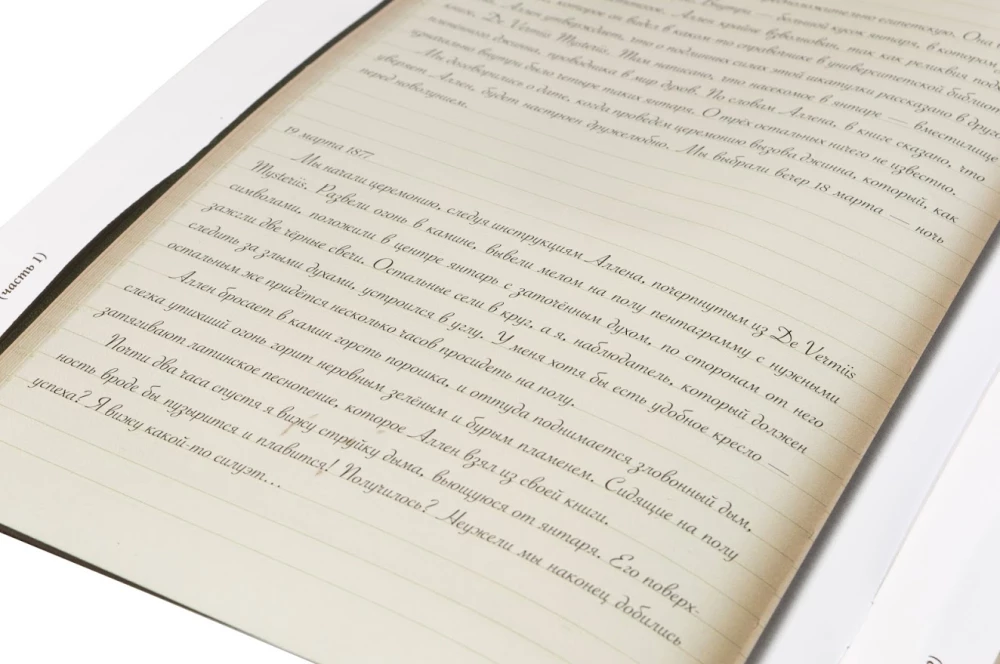 предположительно египетскую. Она
Внутри — большой кусок янтаря, в котором
Аллен крайне взволнован, так как реликвия
которое он видел в каком-то справочнике в университетской
Аллен утверждает, что о подлинных силах этой шкатулки рассказано в
книге, De Vermiis Mysteriis. Там написано, что насекомое в янтаре — вместилище
пленённого джинна, проводника в мир духов. По словам Аллена, в книге сказано, что
изначально внутри было четыре таких янтаря. О трёх остальных ничего не известно.
Мы договорились о дате, когда проведём церемонию вызова джинна, который, как
уверяет Аллен, будет настроен дружелюбно. Мы выбрали вечер 18 марта — ночь
перед новолунием.
19 марта 1877.
Мы начали церемонию, следуя инструкциям Аллена, почерпнутым из De Vermiis
Mysteriis. Развели огонь в камине, вывели мелом на полу пентаграмму с нужными
символами, положили в центре янтарь с заточённым духом, по сторонам от него
зажгли две чёрные свечи. Остальные сели в круг, а я, наблюдатель, который должен
следить за злыми духами, устроился в углу. У меня хотя бы есть удобное кресло —
остальным же придётся несколько часов просидеть на полу.
Аллен бросает в камин горсть порошка, и оттуда поднимается зловонный дым,
слегка утихший огонь горит неровным зелёным и бурым пламенем. Сидящие на полу
затягивают латинское песнопение, которое Аллен взял из своей книги.
Почти два часа спустя я вижу струйку дыма, вьющуюся от янтаря. Его поверх-
ность вроде бы пузырится и плавится! Получилось? Неужели мы наконец добились
успеха? Я вижу какой-то силуэт...
(часть 1)